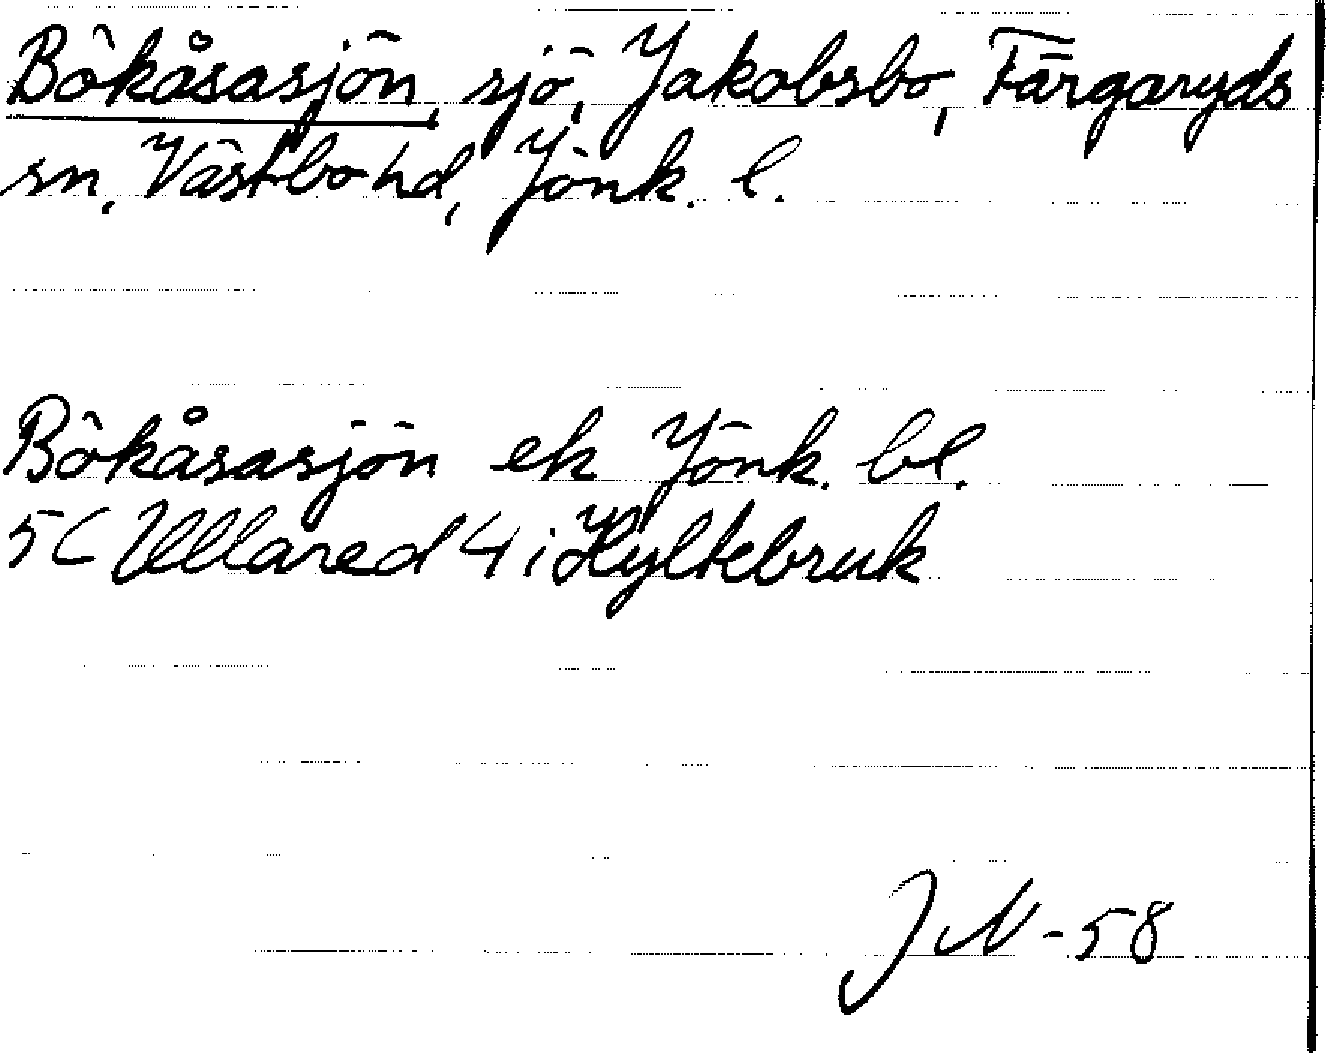 Bökåsasjön, sjö, Jakobsbo, Färgaryds
sn, Västbo hd, Jönk. l.
Bökåsasjön ek Jönk. bl.
5C Ullared 4 i Hyltebruk
JN-58